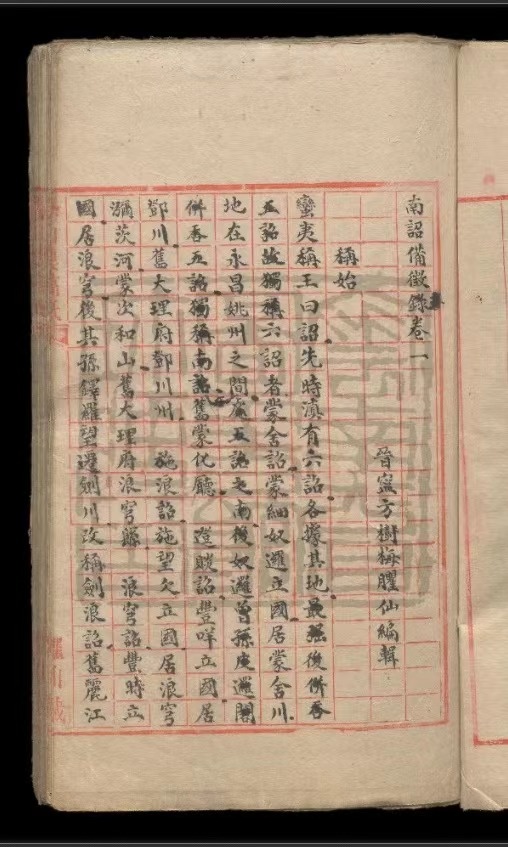 南詔備徵錄卷一
晉寧方樹梅臞仙編輯
稱始
蠻夷稱王曰詔先時滇有六詔各據其地最後併吞
五詔故獨稱六詔者蒙舍詔蒙細奴邏立國居蒙舍川
地在永昌姚州之間居五詔之南後奴邏曾孫皮邏閣
併吞五詔獨稱南詔舊蒙化廳 澄賧詔豐咩立國居
鄧川舊大理府鄧川州 施浪詔施望欠立國居浪穹
瀰茨河蒙次和山舊大理府浪穹縣 浪穹詔豐時立
國居浪穹後其孫鐸羅望遷劍川改稱劍浪詔舊麗江